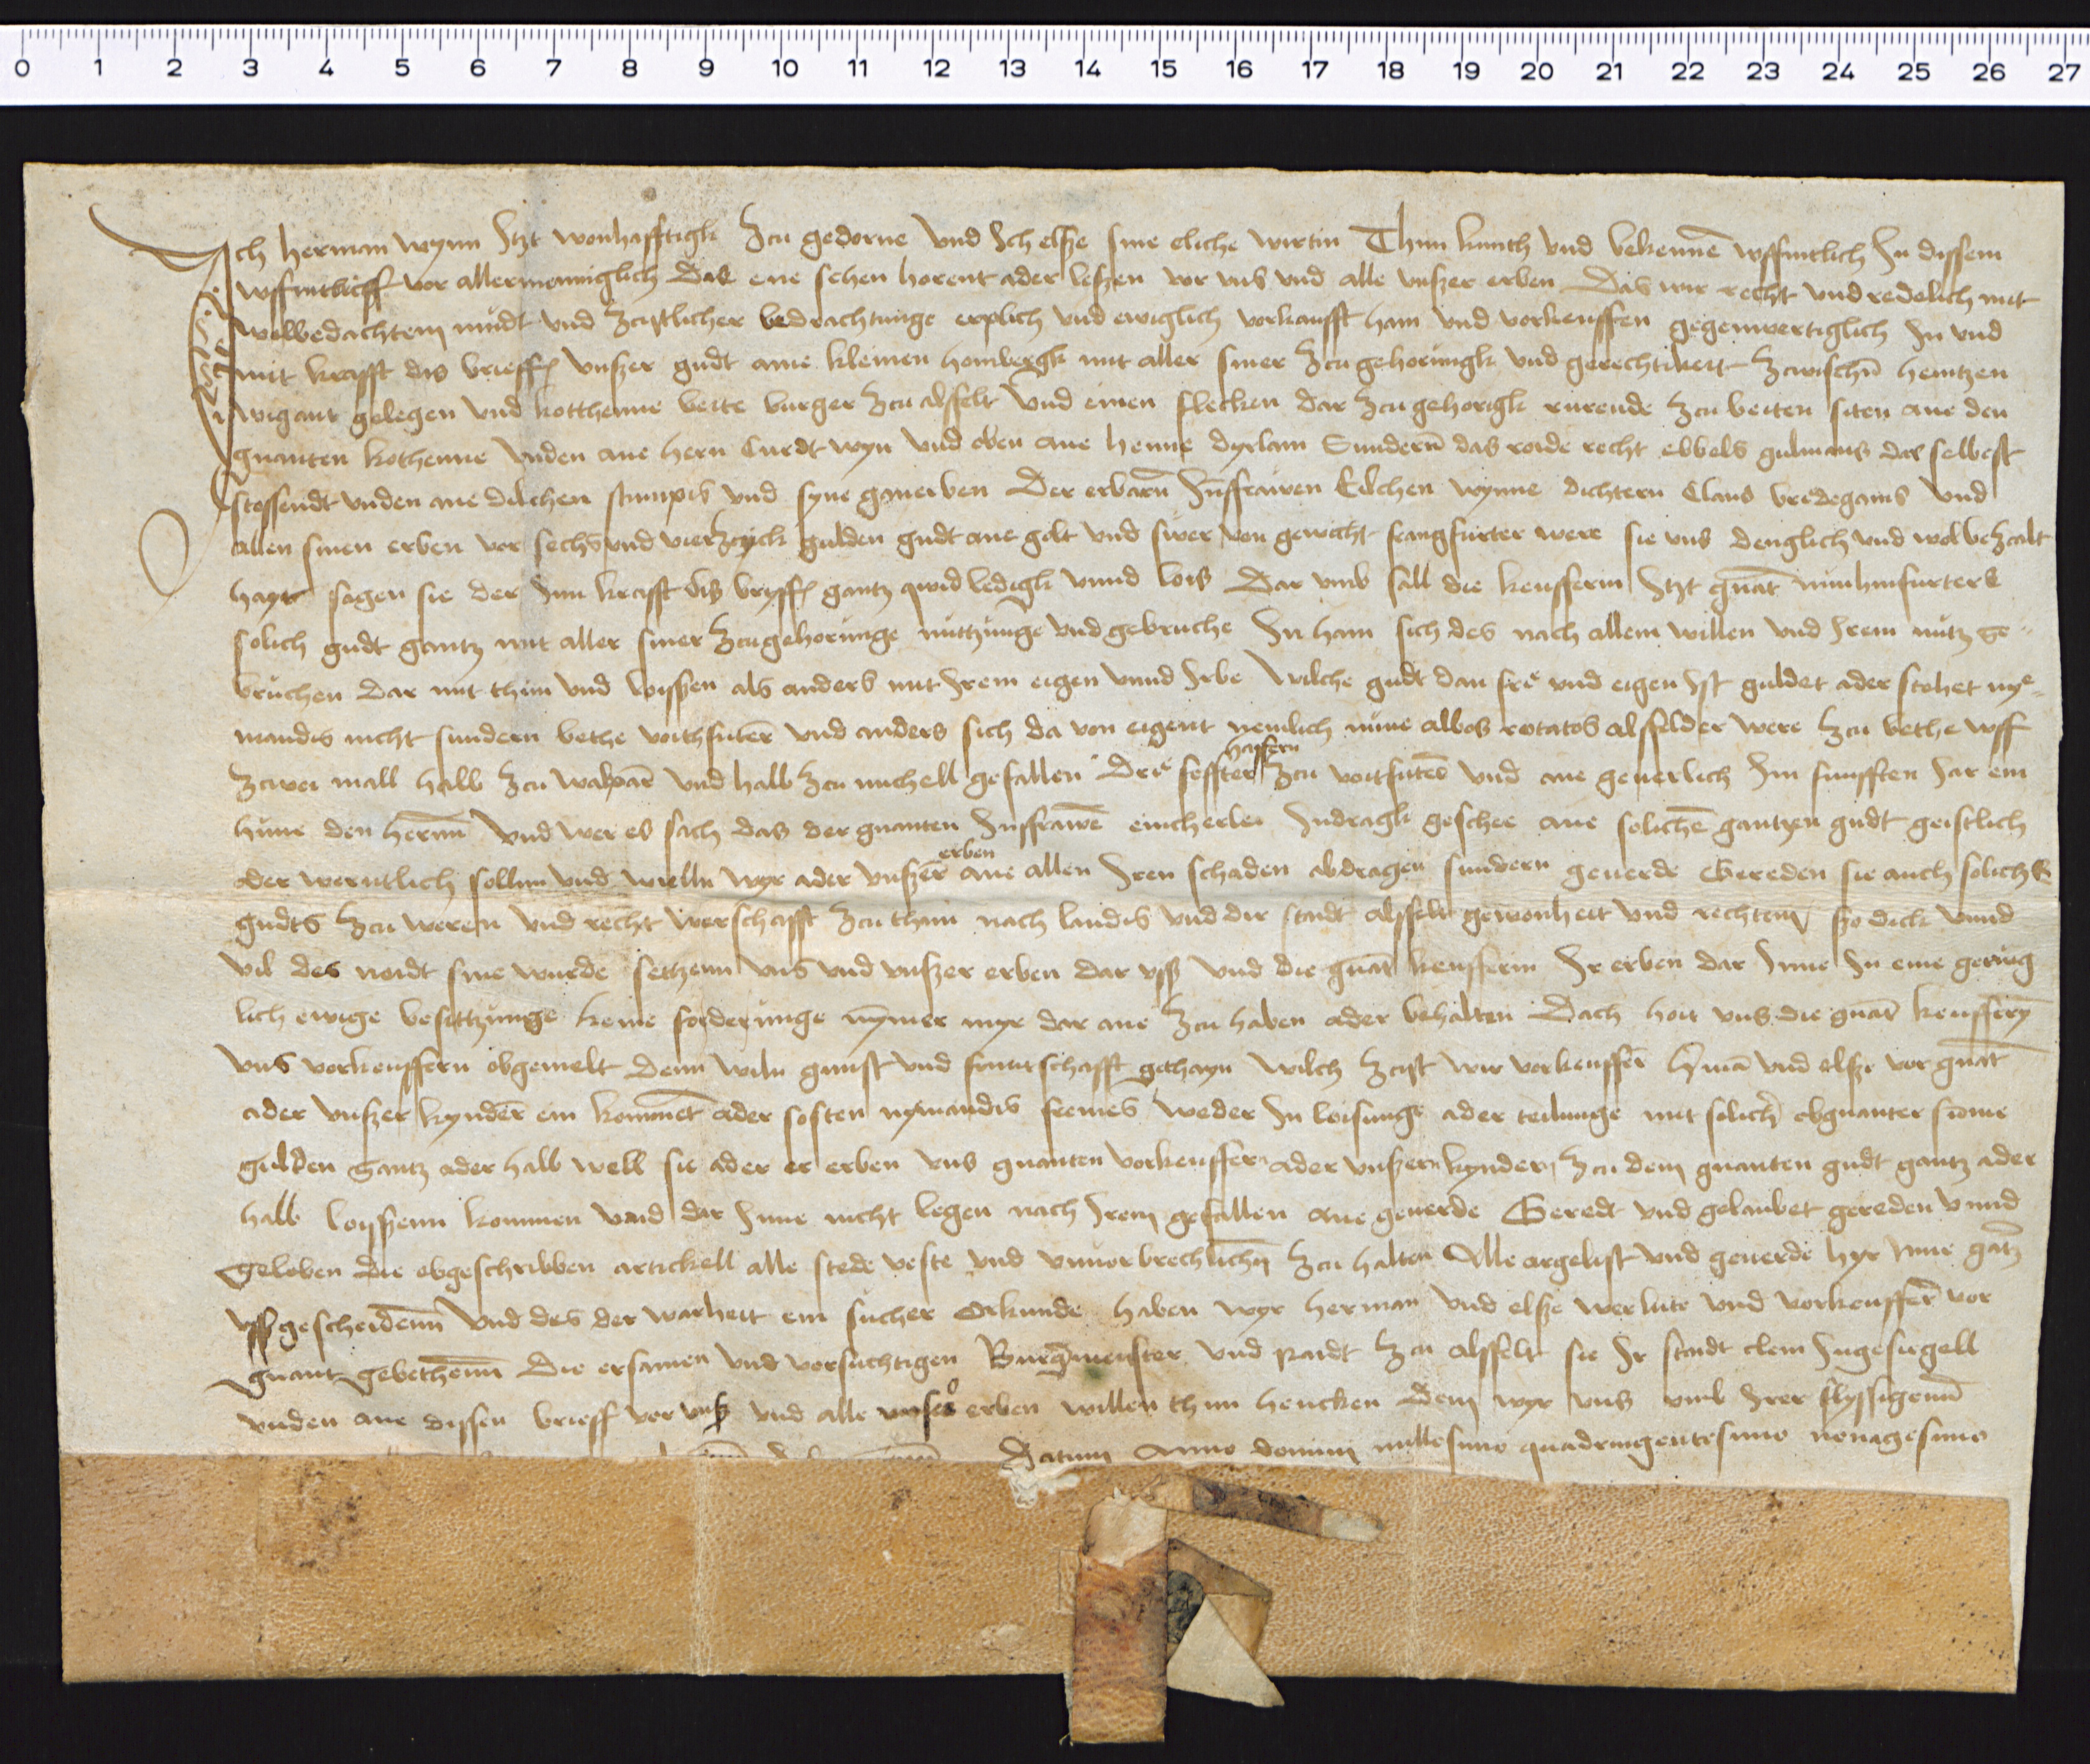 0 1 2 3 4 5 6 7 8 9 10 11 12 13 14 15 16 17 18 19 20 21 22 23 24 25 26 27
Ich Herman wynn Itzt wonhafftigk Zcu gedorne Und Ich elsze sine eliche wirtin Thun kunth Und bekennē uffintlich In dissem
uffintbrieff vor allermenniglich die ene sehen horent ader leszen vor uns und alle unszer erben Das wir recht und redelich mit
wolbedachtem mudt und Zcytlicher bedrachtunge erplich und ewiglich vorkaufft han und vorkeuffen gegenwertiglich In und
mit krafft dis brieffs unszer gudt ane kleinen hombergk mit aller siner Zcu gehorungk und gerechtikeit Zcwischn̄ hentzen
wigant gelegen und kotthenne beite burger Zcu alsfelt Und einen flecken dar Zcu gehorigk rurende Zcu beiten siten ane den
gnanten kothenne Unden ane hern Curdt wyn Und oben ane henne dyrlam Sundern̄ das rode recht ebbels gulmans dar selbest
stossendt unden ane dilchen stumpis und syne ganerben Der erbarn̄ Junffrauwen Eilchen wynne dichtern Claus bredegams Und
allen sinen erben vor sechs und vierZcyck gulden gudt ane golt und swer von gewicht frangfurter were sie uns denglich und wolbeZcalt
hayt sagen sie der Inn krafft dis bryffs gantz qwid ledigk unnd lois Dar umb sall die keufferin Itzt gnāt nunhinfurters
solich gudt gantz mit aller siner Zcugehorunge nutzunge und gebruche In han sich des nach allem willen und Irem nutz ge-
bruchen dar mit thun und loiszen als anders mit Irem eigen unnd Irbe Wilche gudt dan frie und eigen Ist guldet ader stehet nye-
mandis nicht sundern bethe voithfuter̄ und anders sich da von eigent nemlich nune albos rotatos alsfelder were Zcu bethe uff
Zcwei mall halb Zcu walpar̄ und halb Zcu michell gefallen Drie seffter haffern Zcu voitfuter̄ und ane geuerlich Im funfften Jar ein
hune den hernn̄ Und wer es sach das der gnanten Juffrawē eincherlei Indragk geschee ane solichē gantzen gudt geistlich
oder werntlich sollun und wielln wyr ader unszer erben ane allen Iren schaden abdragen sundern geuerde Gereden sie auch solichs
gudts Zcu weren und recht werschafft Zcu thun nach landis und der stadt alsfelt gewonheit und rechtem szo dick unnd
vil des noidt sine wurde setzenn uns und unszer erben dar usz und die gnāt keufferin Ir erben dar Inne In eine gerug
lich ewige besittzunge keine forderunge nymer myr dar ane Zcu haben ader behalten Dach hoit uns die gnāt keufferȳ
uns vorkeuffern obgemelt denn wiln gunst und fruntschafft gethayn wilch Zcyt wir vorkeuffer̄ Hmā und elsze vor gnāt
ader unszer kynder ein kommet ader sosten nymandis fremes weder In loisunge ader teilunge mit solich̄ obgnanter sūme
gulden gantz ader halb well sie ader er erben uns gnanten vorkeuffern ader unszern kyndern Zcu dem gnanten gudt gantz ader
halb loiszenn kommen unnd dar Inne nicht legen nach Irem gefallen ane geuerde Geredt und gelaubet gereden unnd
geloben die obgeschribben artickell alle stede veste und unuorbrechlichn̄ Zcu halten Alle argelist und geuerde hyr Inne gātz
uszgescheidenn̄ Und des der warheit ein sicher orkunde haben wyr Herman und elsze werlute und vorkeuffer̄ vor
gnant gebethenn̄ Die ersamen und vorsichtigen Burgermeister und raidt Zcu alsfelt sie Ir stadt clein Ingesiegell
unden ane dissen brieff vor unsz und alle unser erben willen thun hencken Dem wyr uns umb Irer flyssigenn̄
Datum Anno domini millesimo quadringentesimo nonagesimo